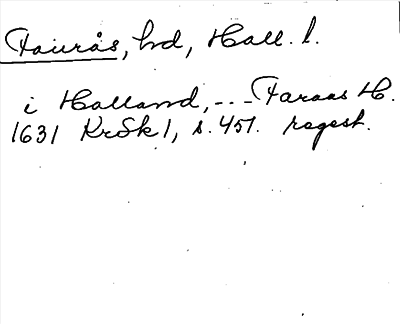 Faurås, hd, Hall. l.
i Halland, --- Faraas H.
1631 KrSk 1, s. 457. regest.